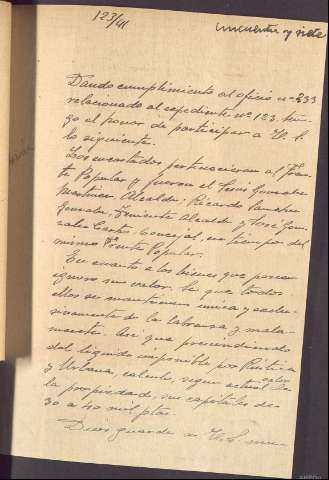 123/41
cincuenta y siete
Dando cumplimiento al oficio nº 233
relacionado al expediente nº 123 ten-
go el honor de participar a V. S.
lo siguiente.
Los encartados pertenecieron al Fren-
te Popular y fueron el Gonzalez
Martinez, Alcalde, Ricardo
Gonzalez, Teniente Alcalde y José Gon-
zalez Castro, Concejal, en tiempo del
mismo Frente Popular.
En cuanto a los bienes que posean
ignoro su valor, lo que todos
ellos se mantienen unica y exclu-
sivamente de la labranza y mala-
mente. Asi que prescindiendo
del liquido imponible por Rústica
y Urbana, calculo, segun actual valor
la propiedad, un capital de
30 a 40 mil ptas.
Dios guarde a V. S. muc-